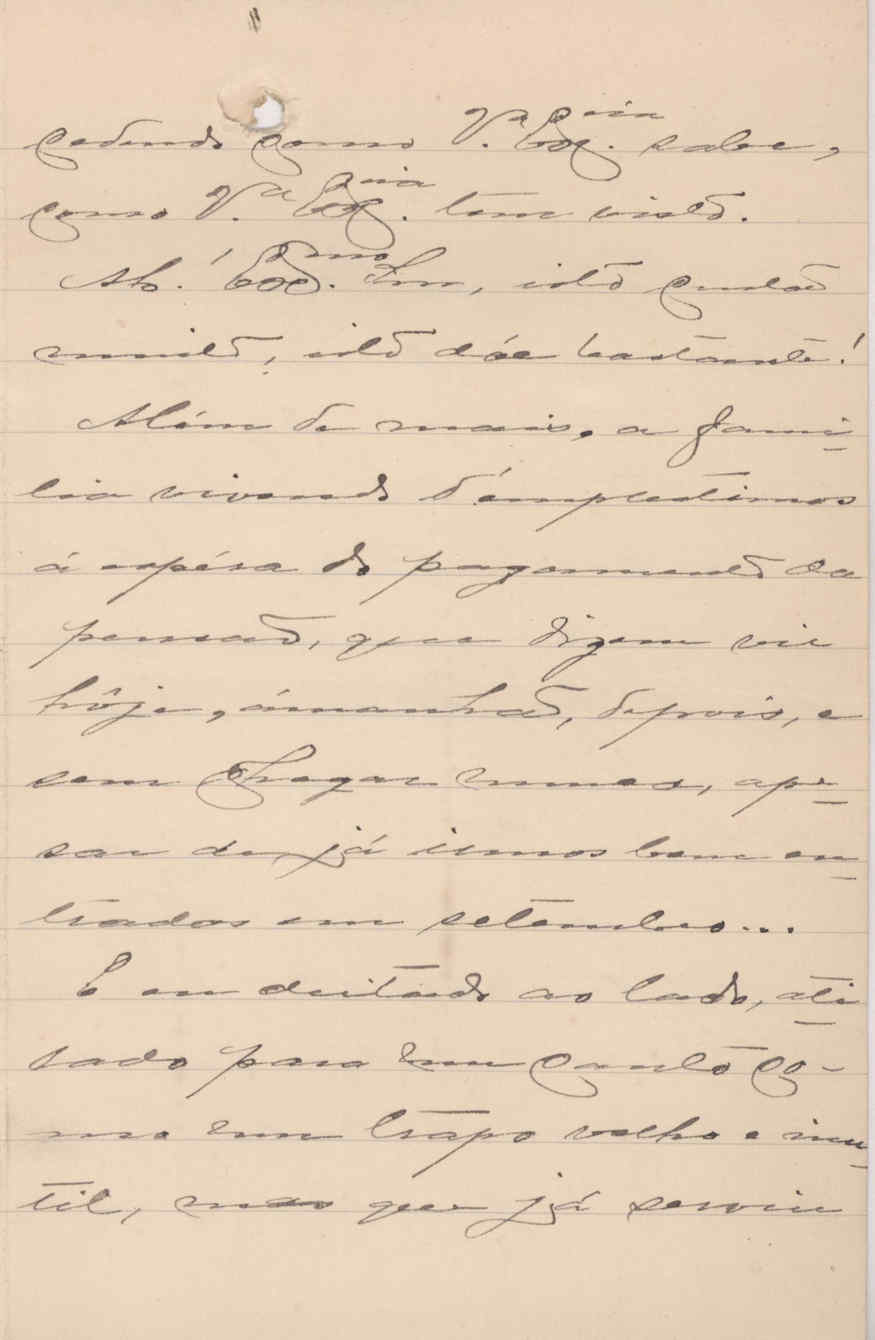 cedendo como V.ª Ex.cia sabe,
como V.ª Ex.cia tem visto.
Ah! Exc.mo Snr, isto custa
muito, isto dóe bastante!
Além de mais, a fami-
lia vivendo d'emprestimos
á espéra do pagamento da
pensaõ, que dizem vir
hôje, ámanhaõ, depois, e
sem chegar nunca, ape-
sar de já irmos bem en-
trados em setembro...
E eu deitado ao lado, ati-
rado para um canto co-
mo um trapo velho e inu-
til, mas que já serviu